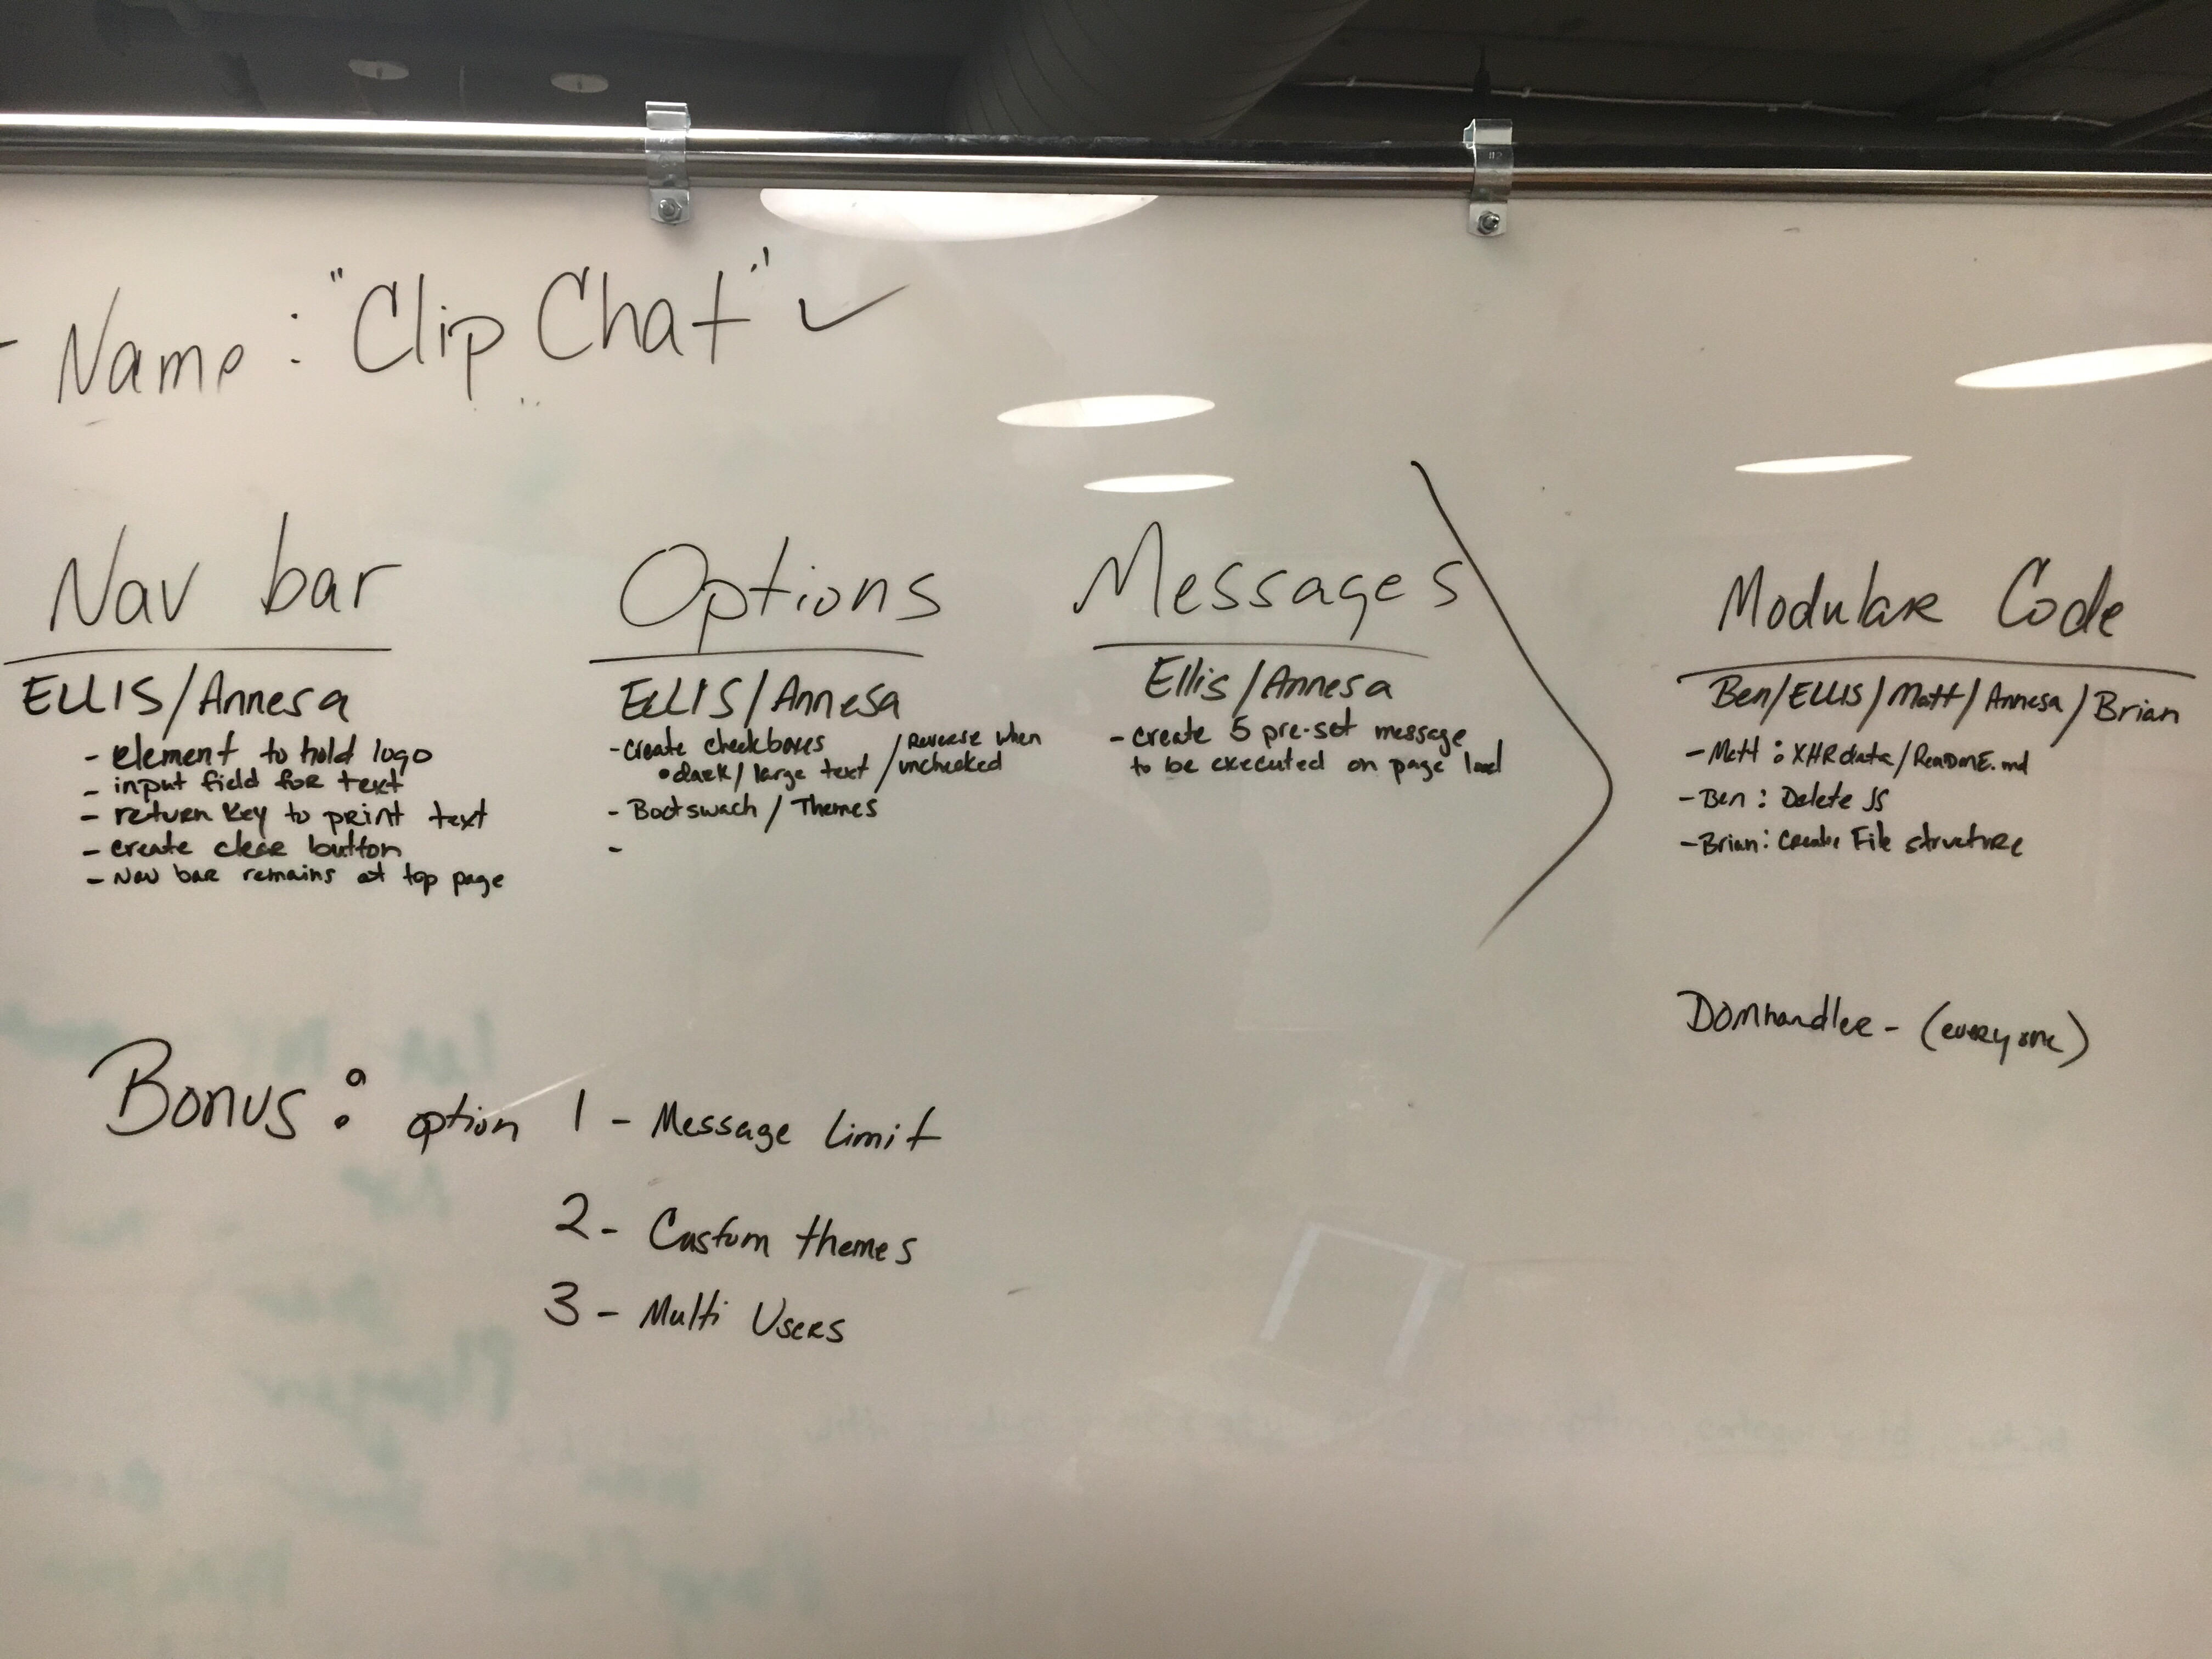 - Name: "Clip Chat" ✓
Nav bar
ELLIS/Annesa
- element to hold logo
- input field for text
- return key to print text
- create clear button
- Nav bar remains at top page
Options
ELLIS/Annesa
- Create checkboxes
• dark/large text / Reverse when unchecked
- Bootswach / Themes
-
Messages
Ellis/Annesa
- create 5 pre-set message
to be executed on page load
Modular Code
Ben/ELLIS/Matt/Annesa/Brian
- Matt: XHR data/ReaDmE.md
- Ben: Delete JS
- Brian: Create File structure
DOMhandler - (everyone)
Bonus: option 1 - Message Limit
2 - Custom themes
3 - Multi Users